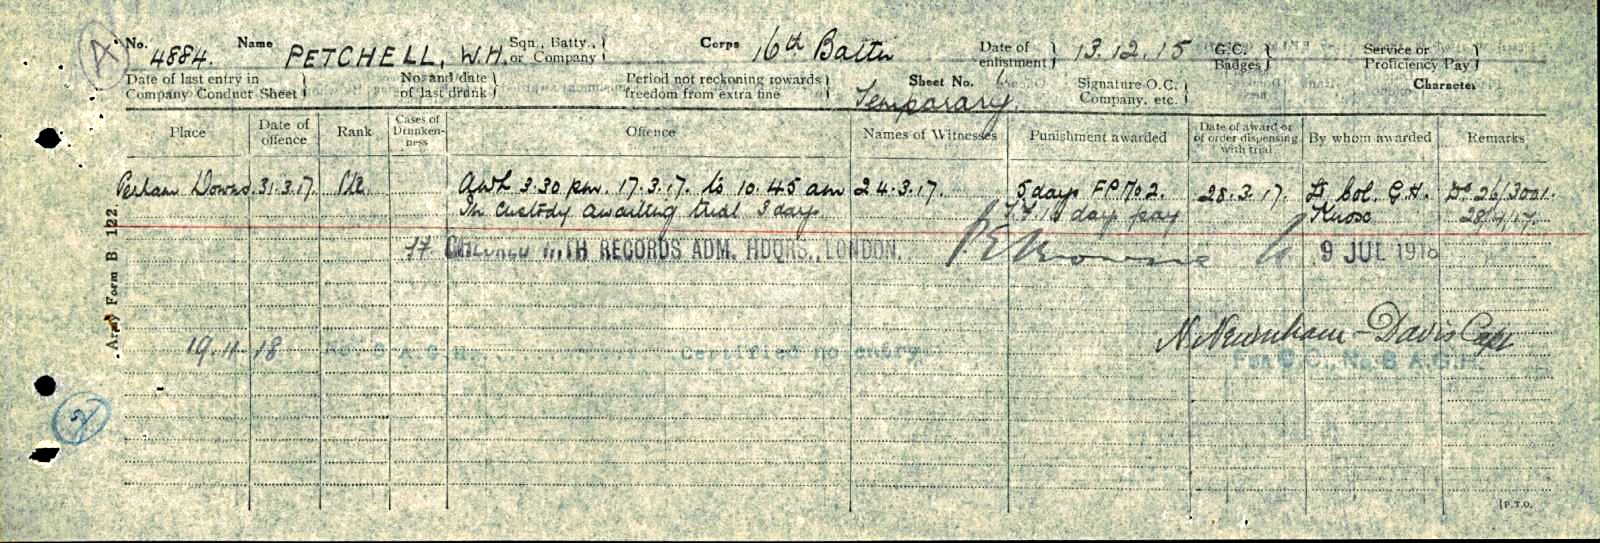 A
No. 4884. Name PETCHELL, W.H. Sqn., Batty., or Company Corps 16th Battn Date of enlistment 13.12.15 G.C. Badges Service or Proficiency Pay
Date of last entry in Company Conduct Sheet No. and date of last drunk Period not reckoning towards freedom from extra fine Sheet No. Temporary. Signature O.C. Company, etc. Character
Place Date of offence Rank Cases of Drunkenness Offence Names of Witnesses Punishment awarded Date of award or of order dispensing with trial By whom awarded Remarks
Perham Downs. 31.3.17. Pte. Awl 3.30 pm. 17.3.17. to 10.45 am 24.3.17. 5 days FP No 2. 28.3.17. Lt Col. G.H. Do 26/3001.
In custody awaiting trial 3 days day pay Knox 28/4/17.
WITH RECORDS ADM. HDQRS., LONDON. 9 JUL 1918
N. Newnham-Davis Capt
19.11.18 Certified no entry. For O.C., No. 8 A.G.H.
Army Form B 122
2
[P.T.O.